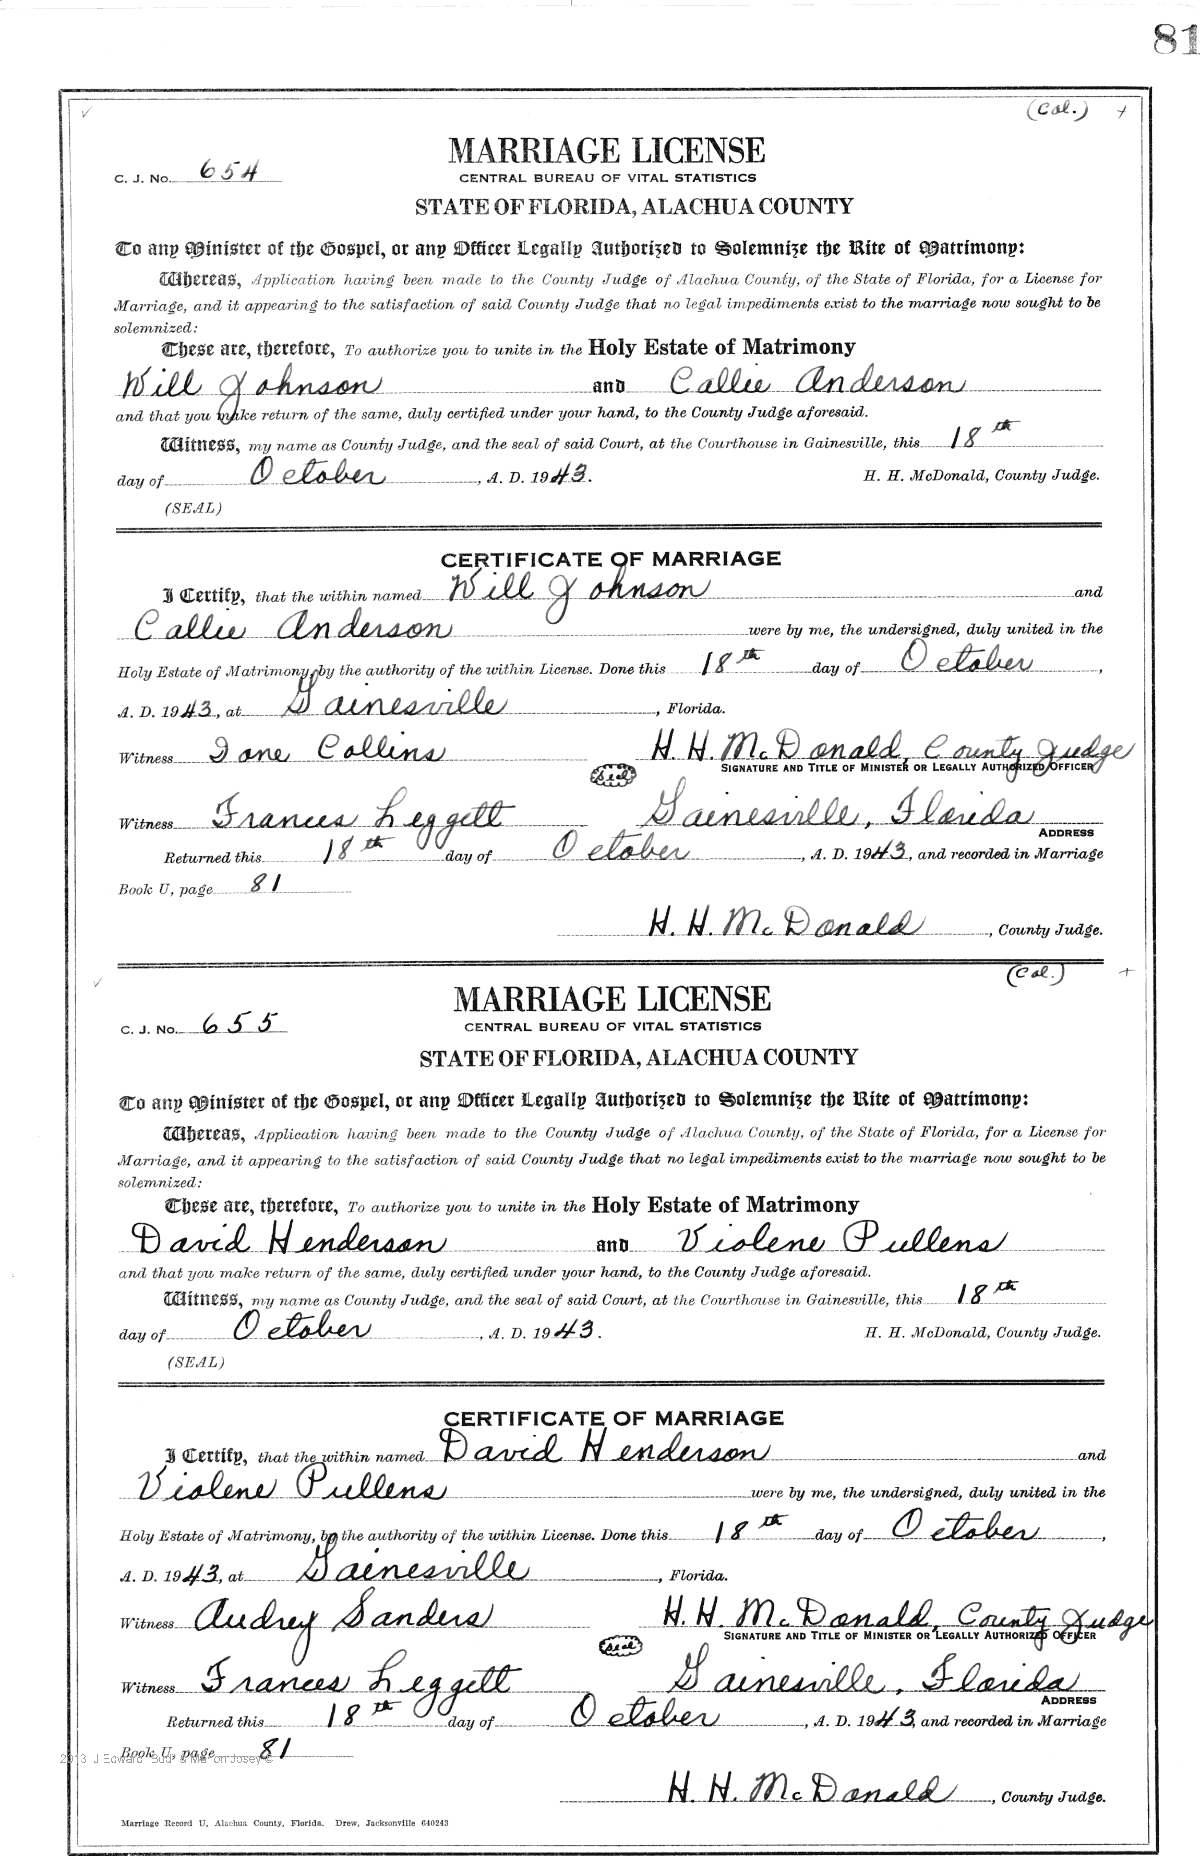 81
(Col.) +
MARRIAGE LICENSE
C. J. No. 654
CENTRAL BUREAU OF VITAL STATISTICS
STATE OF FLORIDA, ALACHUA COUNTY
To any Minister of the Gospel, or any Officer Legally Authorized to Solemnize the Rite of Matrimony:
Whereas, Application having been made to the County Judge of Alachua County, of the State of Florida, for a License for
Marriage, and it appearing to the satisfaction of said County Judge that no legal impediments exist to the marriage now sought to be
solemnized:
These are, therefore, To authorize you to unite in the Holy Estate of Matrimony
Will Johnson and Callie Anderson
and that you make return of the same, duly certified under your hand, to the County Judge aforesaid.
Witness, my name as County Judge, and the seal of said Court, at the Courthouse in Gainesville, this 18th
day of October, A. D. 1943. H. H. McDonald, County Judge.
(SEAL)
CERTIFICATE OF MARRIAGE
I Certify, that the within named Will Johnson and
Callie Anderson were by me, the undersigned, duly united in the
Holy Estate of Matrimony, by the authority of the within License. Done this 18th day of October,
A. D. 1943, at Gainesville, Florida.
Witness Jane Collins H. H. McDonald, County Judge
Seal SIGNATURE AND TITLE OF MINISTER OR LEGALLY AUTHORIZED OFFICER
Witness Frances Leggett Gainesville, Florida
ADDRESS
Returned this 18th day of October, A. D. 1943, and recorded in Marriage
Book U, page 81
H. H. McDonald, County Judge.
(Col.) +
MARRIAGE LICENSE
C. J. No. 655
CENTRAL BUREAU OF VITAL STATISTICS
STATE OF FLORIDA, ALACHUA COUNTY
To any Minister of the Gospel, or any Officer Legally Authorized to Solemnize the Rite of Matrimony:
Whereas, Application having been made to the County Judge of Alachua County, of the State of Florida, for a License for
Marriage, and it appearing to the satisfaction of said County Judge that no legal impediments exist to the marriage now sought to be
solemnized:
These are, therefore, To authorize you to unite in the Holy Estate of Matrimony
David Henderson and Violene Pullens
and that you make return of the same, duly certified under your hand, to the County Judge aforesaid.
Witness, my name as County Judge, and the seal of said Court, at the Courthouse in Gainesville, this 18th
day of October, A. D. 1943. H. H. McDonald, County Judge.
(SEAL)
CERTIFICATE OF MARRIAGE
I Certify, that the within named David Henderson and
Violene Pullens were by me, the undersigned, duly united in the
Holy Estate of Matrimony, by the authority of the within License. Done this 18th day of October,
A. D. 1943, at Gainesville, Florida.
Witness Audrey Sanders H. H. McDonald, County Judge
Seal SIGNATURE AND TITLE OF MINISTER OR LEGALLY AUTHORIZED OFFICER
Witness Frances Leggett Gainesville, Florida
ADDRESS
Returned this 18th day of October, A. D. 1943, and recorded in Marriage
Book U, page 81
2013 J Edward Josey ©
H. H. McDonald, County Judge.
Marriage Record U, Alachua County, Florida. Drew, Jacksonville 640243